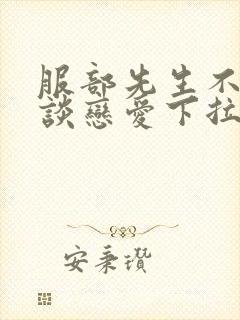 服部先生不
談戀愛下拉
安秉瓚